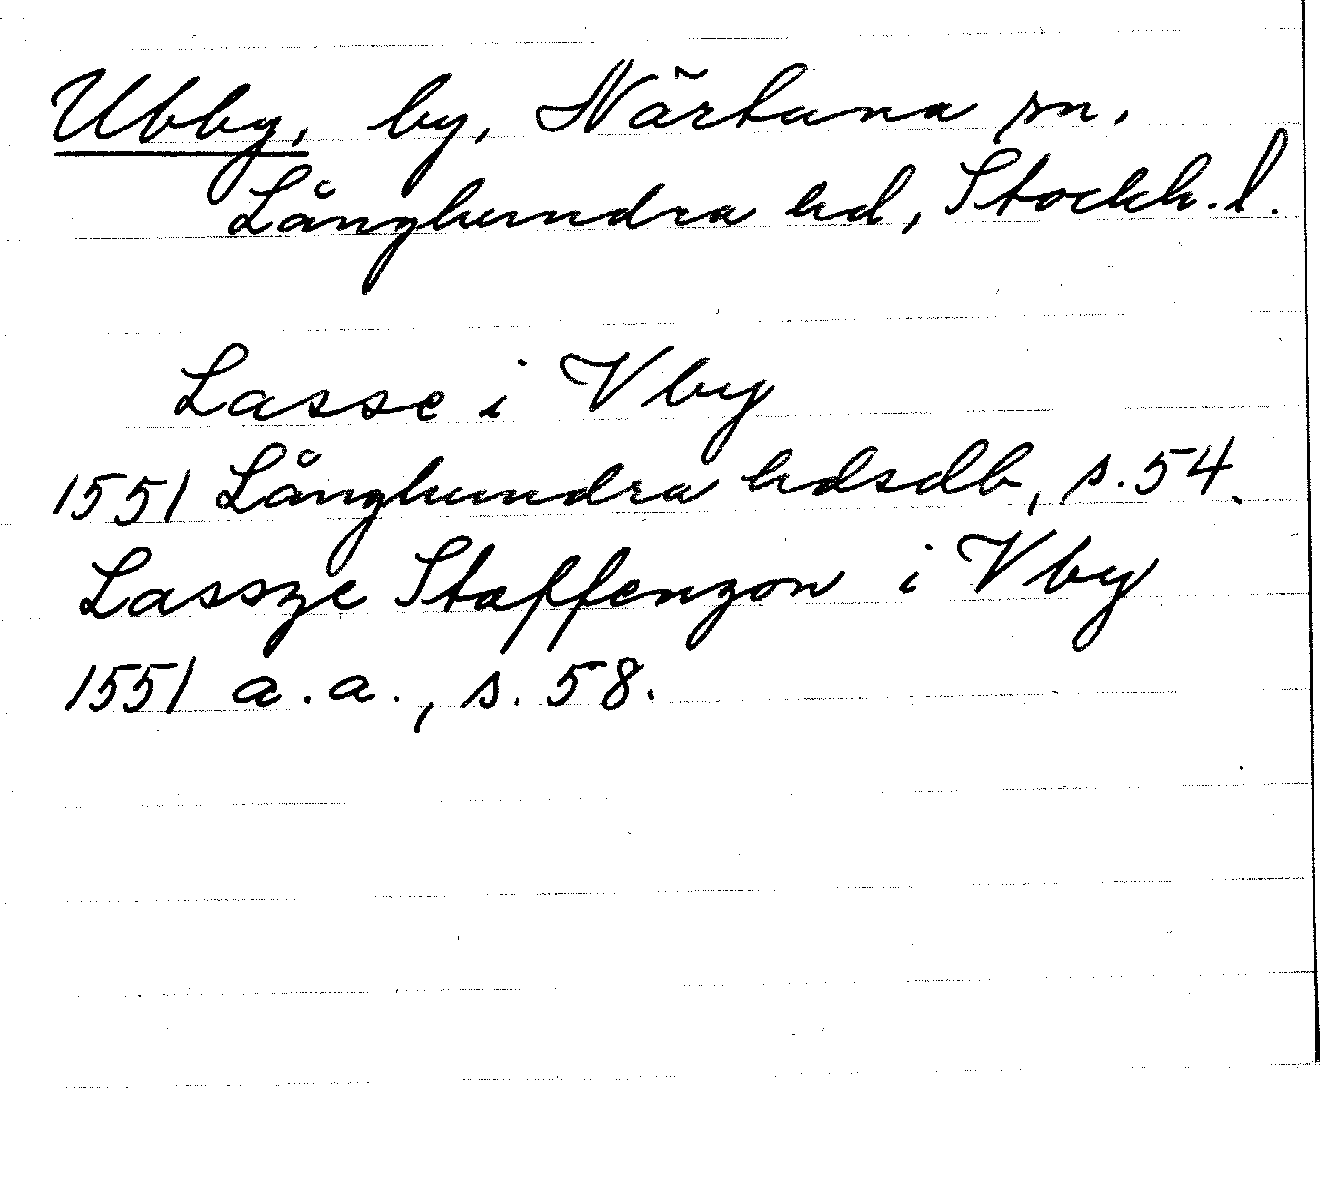 Ubby, by, Närtuna sn.
Långhundra hd, Stockh. l.
Lasse i Vby
1551 Långhundra hdsdb, s. 54.
Lassze Staffenzon i Vby
1551 a. a., s. 58.